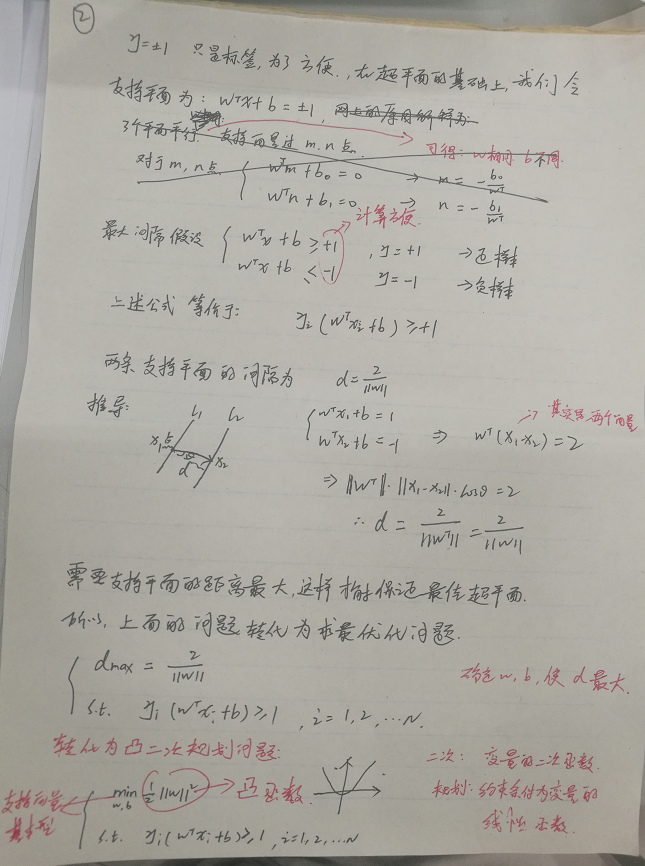 ②
y=±1 只是标签,为了方便,在超平面的基础上,我们令
支持平面为: wᵀx+b=±1, 网上的原因解释为:
3个平面平行, 支持面是过 m,n 点. 可得: w相同 b不同.
对于m,n点 { wᵀm+b₀=0 ⇒ m = -b₀/wᵀ
wᵀn+b₁=0 ⇒ n = -b₁/wᵀ
计算方便.
最大间隔假设 { wᵀx+b ≥+1 , y=+1 →正样本
wᵀx+b ≤-1 y=-1 →负样本
上述公式 等价于: yᵢ(wᵀxᵢ+b)≥+1
两条支持平面的间隔为 d=2/||w||
推导: l₁ l₂ x₁点 θ d x₂
{ wᵀx₁+b=1
wᵀx₂+b=-1 ⇒ wᵀ(x₁-x₂)=2
其实是两个向量
⇒ ||wᵀ||·||x₁-x₂||·cosθ=2
∴ d = 2/||wᵀ|| = 2/||w||
需要支持平面的距离最大,这样才保证最佳超平面.
所以,上面的问题转化为求最优化问题.
{ dmax = 2/||w||
s.t. yᵢ(wᵀxᵢ+b)≥1 , i=1,2,…N.
确定w,b,使d最大.
转化为凸二次规划问题:
支持向量基本型 { min w,b ½||w||² → 凸函数.
s.t. yᵢ(wᵀxᵢ+b)≥1, i=1,2,…N
二次: 变量的二次函数.
规划: 约束条件为变量的
线性函数.